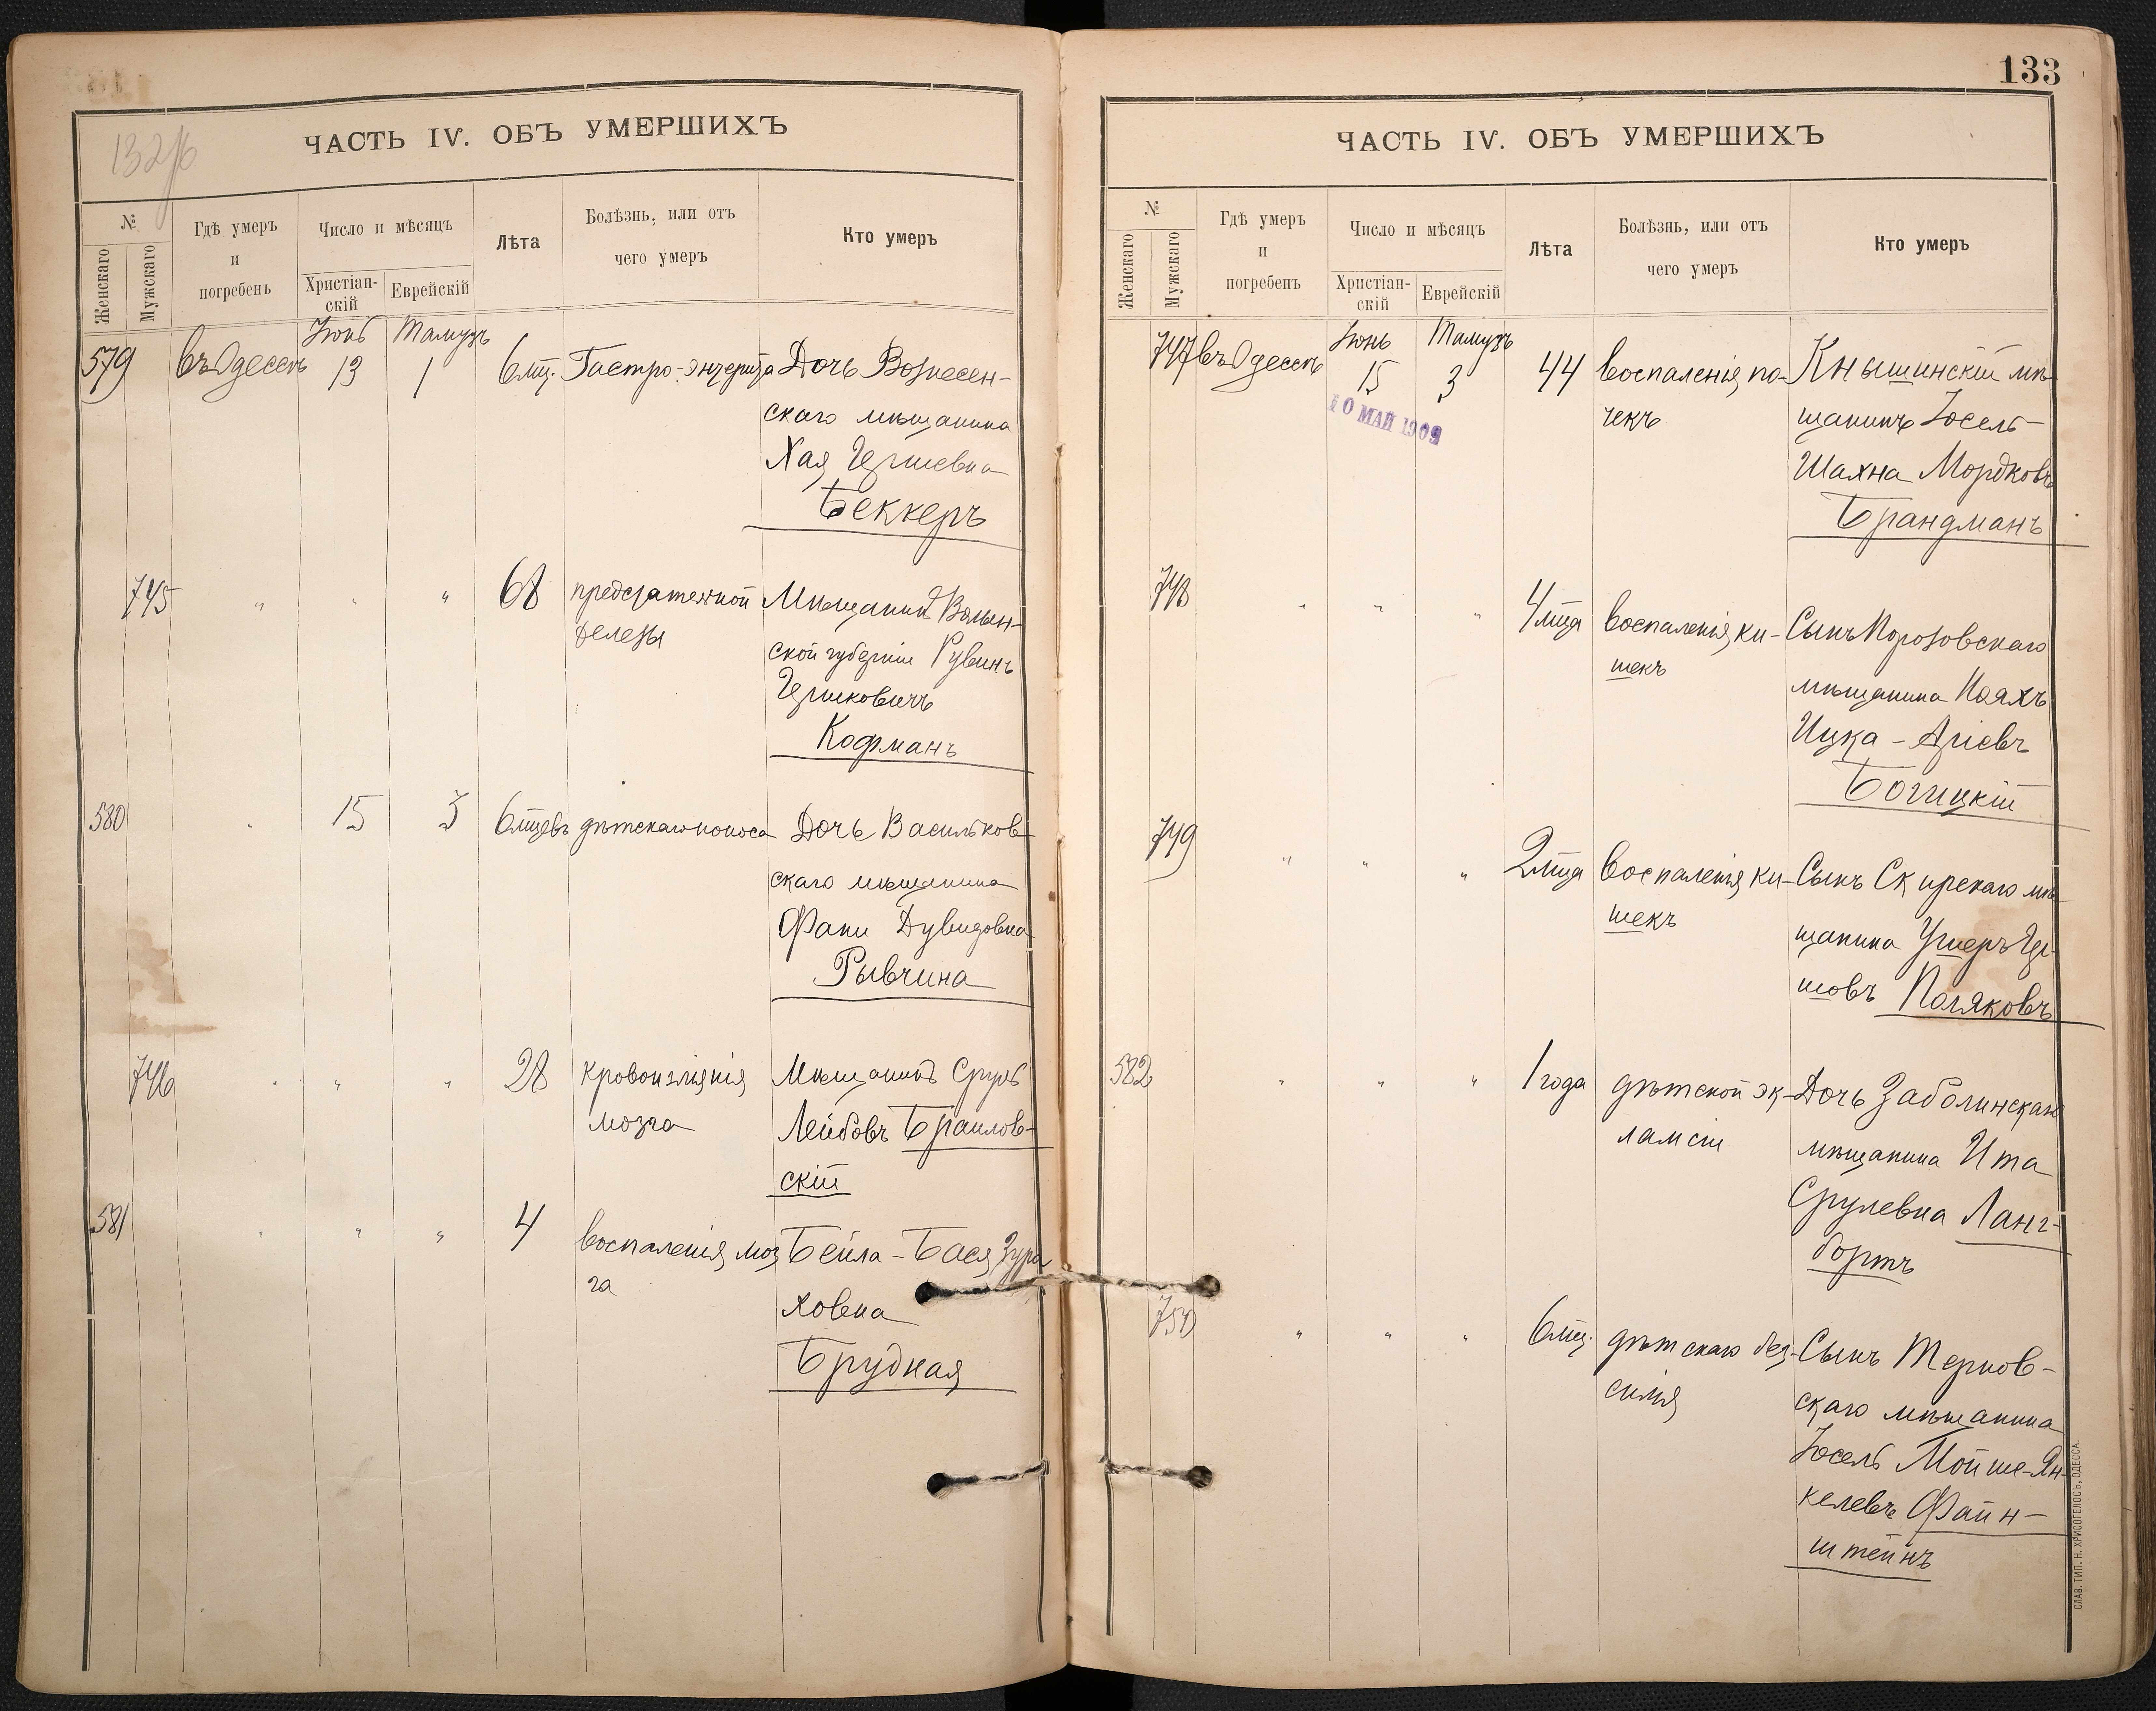 132/б
ЧАСТЬ IV. ОБЪ УМЕРШИХЪ
№
Женскаго
Мужскаго
Гдѣ умеръ
и
погребенъ
Число и мѣсяцъ
Христіан-
скій
Еврейскій
Лѣта
Болѣзнь, или отъ
чего умеръ
Кто умеръ
Іюнь Тамузъ
579 въ Одессѣ 13 1 6 мц. Гастро-энтерита Дочь Вознесен-
скаго мѣщанина
Хая Гершевна
Беккеръ
745 " " " 68 предстательной Мѣщанинъ Волын-
железы ской губерніи Рувинъ
Гершковичъ
Кофманъ
580 " 15 3 6 мцевъ дѣтскаго поноса Дочь Васильков-
скаго мѣщанина
Фани Дувидовна
Рывчина
746 " " " 28 кровоизліянія Мѣщанинъ Сруль
мозга Лейбовъ Браилов-
скій
581 " " " 4 воспаленія моз Бейла-Бася Зура
га ховна
Брудная
133
ЧАСТЬ IV. ОБЪ УМЕРШИХЪ
№
Женскаго
Мужскаго
Гдѣ умеръ
и
погребенъ
Число и мѣсяцъ
Христіан-
скій
Еврейскій
Лѣта
Болѣзнь, или отъ
чего умеръ
Кто умеръ
Іюнь Тамузъ
747 въ Одессѣ 15 3 44 воспаленія по- Кнышинскій мѣ-
10 МАЙ 1909
чекъ щанинъ Іосель-
Шахна Мордковъ
Брандманъ
748 " " " 4 мца воспаленія ки- Сынъ Порозовскаго
шекъ мѣщанина Ноахъ
Ицка-Аріевъ
Богицкій
749 " " " 2 мца воспаленія ки- Сынъ Сквирскаго мѣ-
шекъ щанина Ушеръ Гер-
шовъ Поляковъ
582 " " " 1 года дѣтской эк- Дочь Заболинскаго
лампсіи мѣщанина Ита
Срулевна Ланг-
бортъ
750 " " " 6 мц. дѣтскаго без- Сынъ Тернов-
силія скаго мѣщанина
Іосель Мойше-Ян-
келевъ Файн-
штейнъ
СЛАВ. ТИП. Н. ХРИСОГЕЛОСЪ, ОДЕССА.